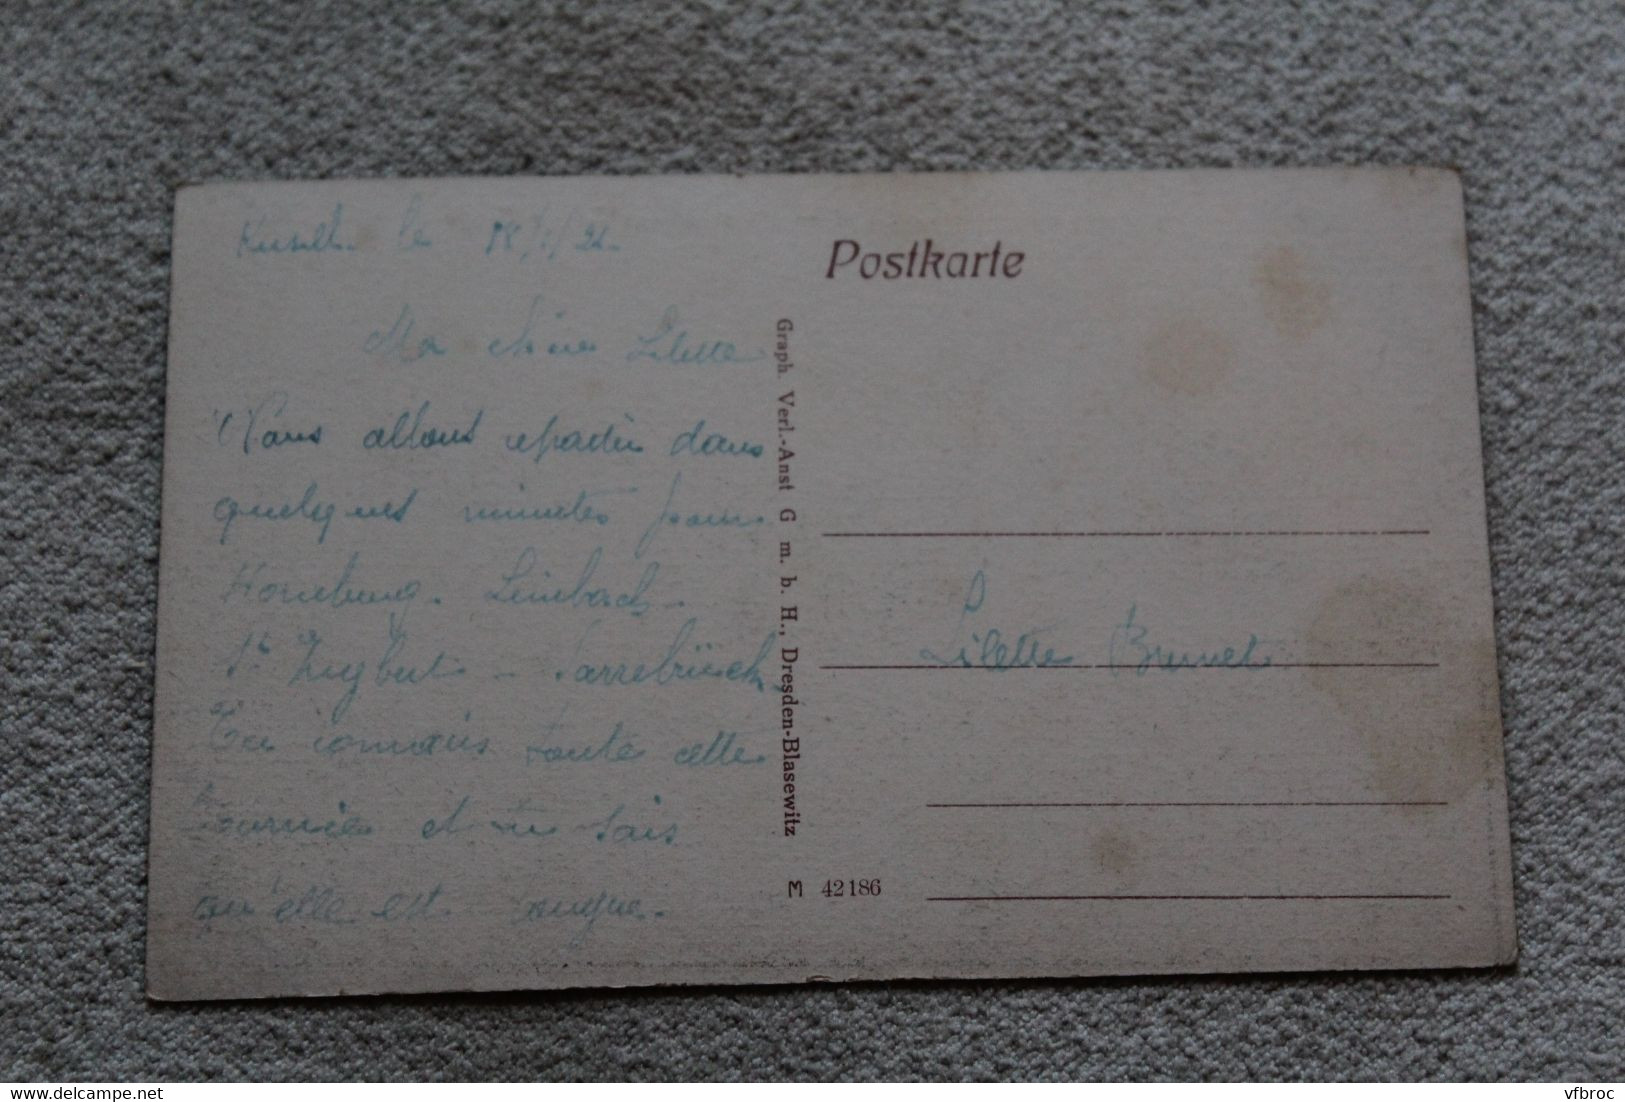 Kusel le 18/1/21
Ma chère Lilette
Nous allons repartir dans
quelques minutes pour
Homburg - Limbach -
St Ingbert - Sarrebrück
Tu connais toute cette
tournée et tu sais
qu'elle est longue.
Postkarte
Graph. Verl.-Anst G m. b. H., Dresden-Blasewitz
Lilette Brunet
42186
http://www.delcampe.net
vfbroc